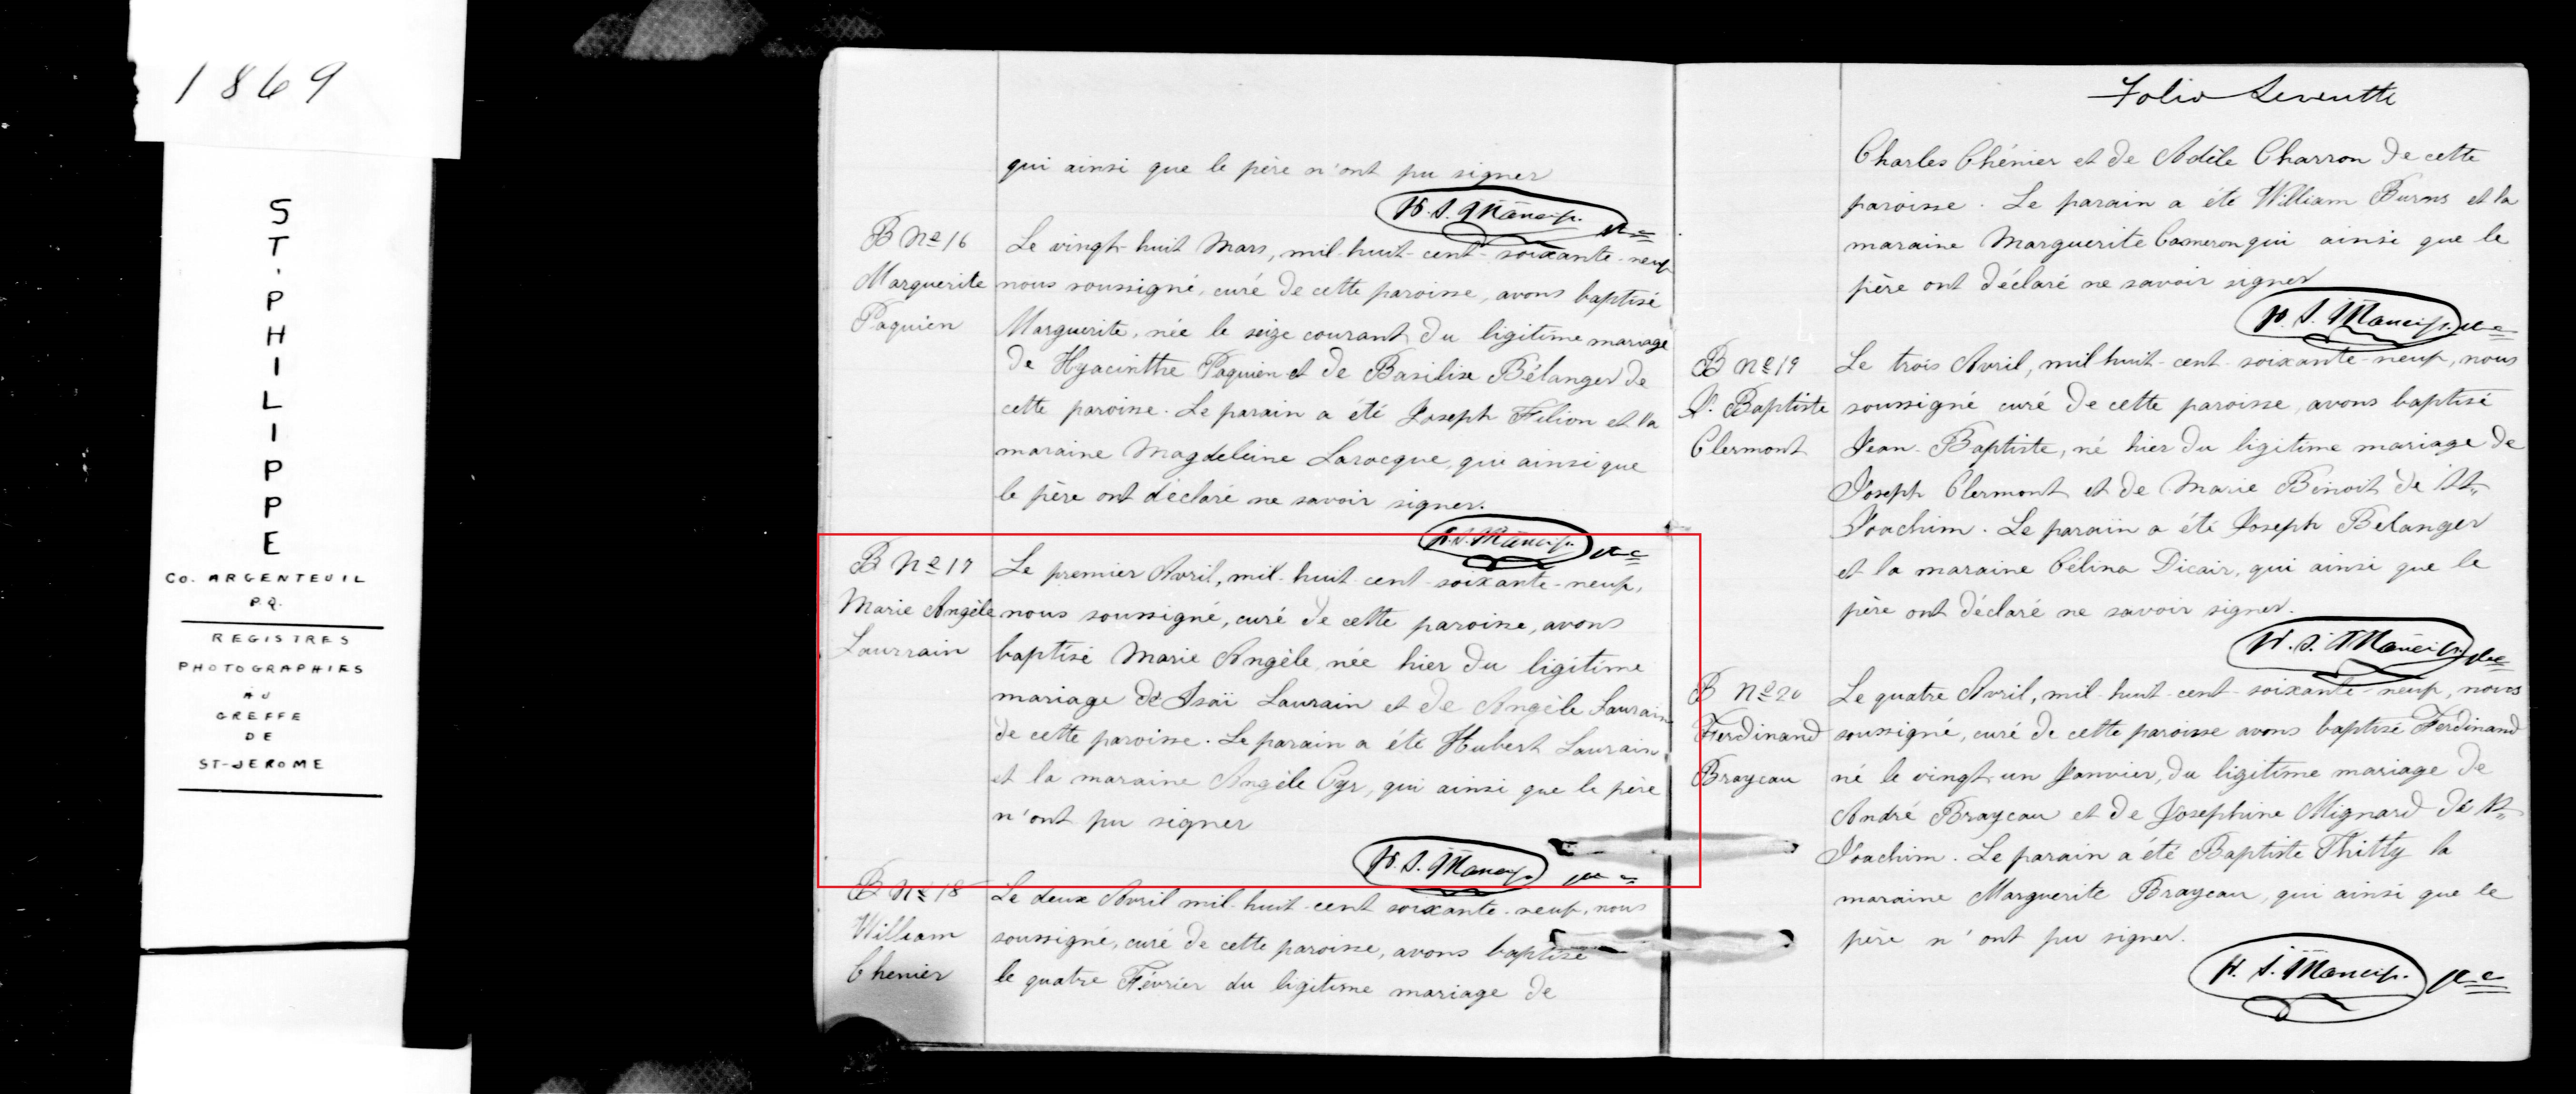 1869
ST. PHILIPPE
CO. ARGENTEUIL
P.Q.
REGISTRES
PHOTOGRAPHIES
AU
GREFFE
DE
ST-JEROME
qui ainsi que le père n'ont pu signer
B No 16
Marguerite
Paquien
Le vingt-huit Mars, mil-huit-cent-soixante-neuf
nous soussigné, curé de cette paroisse, avons baptisé
Marguerite, née le seize courant du ligitime mariage
de Hyacinthe Paquien et de Basilise Bélanger de
cette paroisse. Le parain a été Joseph Filion et la
maraine Magdeleine Larocque, qui ainsi que
le père ont déclaré ne savoir signer.
B No 17
Marie Angèle
Laurrain
Le premier Avril, mil-huit cent-soixante-neuf,
nous soussigné, curé de cette paroisse, avons
baptisé Marie Angèle, née hier du ligitime
mariage de Isaï Laurain et de Angèle Laurain
de cette paroisse. Le parain a été Hubert Laurain
et la maraine Angèle Cyr, qui ainsi que le père
n'ont pu signer
B No 18
William
Chenier
Le deux Avril mil-huit-cent soixante-neuf, nous
soussigné, curé de cette paroisse, avons baptisé
le quatre Février du ligitime mariage de
Folio Seventh
Charles Chénier et de Adèle Charron de cette
paroisse. Le parain a été William Burns et la
maraine Marguerite Cameron qui ainsi que le
père ont déclaré ne savoir signer
B No 19
J. Baptiste
Clermont
Le trois Avril, mil huit-cent-soixante-neuf, nous
soussigné curé de cette paroisse, avons baptisé
Jean-Baptiste, né hier du ligitime mariage de
Joseph Clermont et de Marie Binoit de St.
Joachim. Le parain a été Joseph Belanger
et la maraine Célina Dicair, qui ainsi que le
père ont déclaré ne savoir signer.
B No 20
Ferdinand
Brayeau
Le quatre Avril, mil-huit-cent-soixante-neuf, nous
soussigné, curé de cette paroisse avons baptisé Ferdinand
né le vingt-un Janvier, du ligitime mariage de
André Brayeau et de Josephine Mignard de St.
Joachim. Le parain a été Baptiste Thitty la
maraine Marguerite Brayeau, qui ainsi que le
père n'ont pu signer.